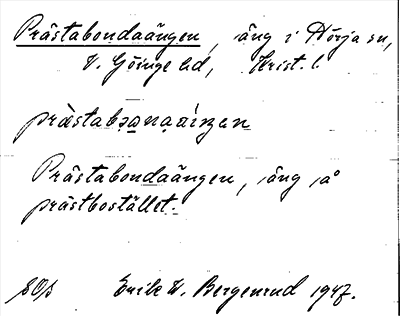 Prästabondaängen, äng i Hörja sn,
V. Göinge hd, Krist. l.
Prästabondaängen, äng på
prästbostället.
Erik W. Bergenrud 1947.